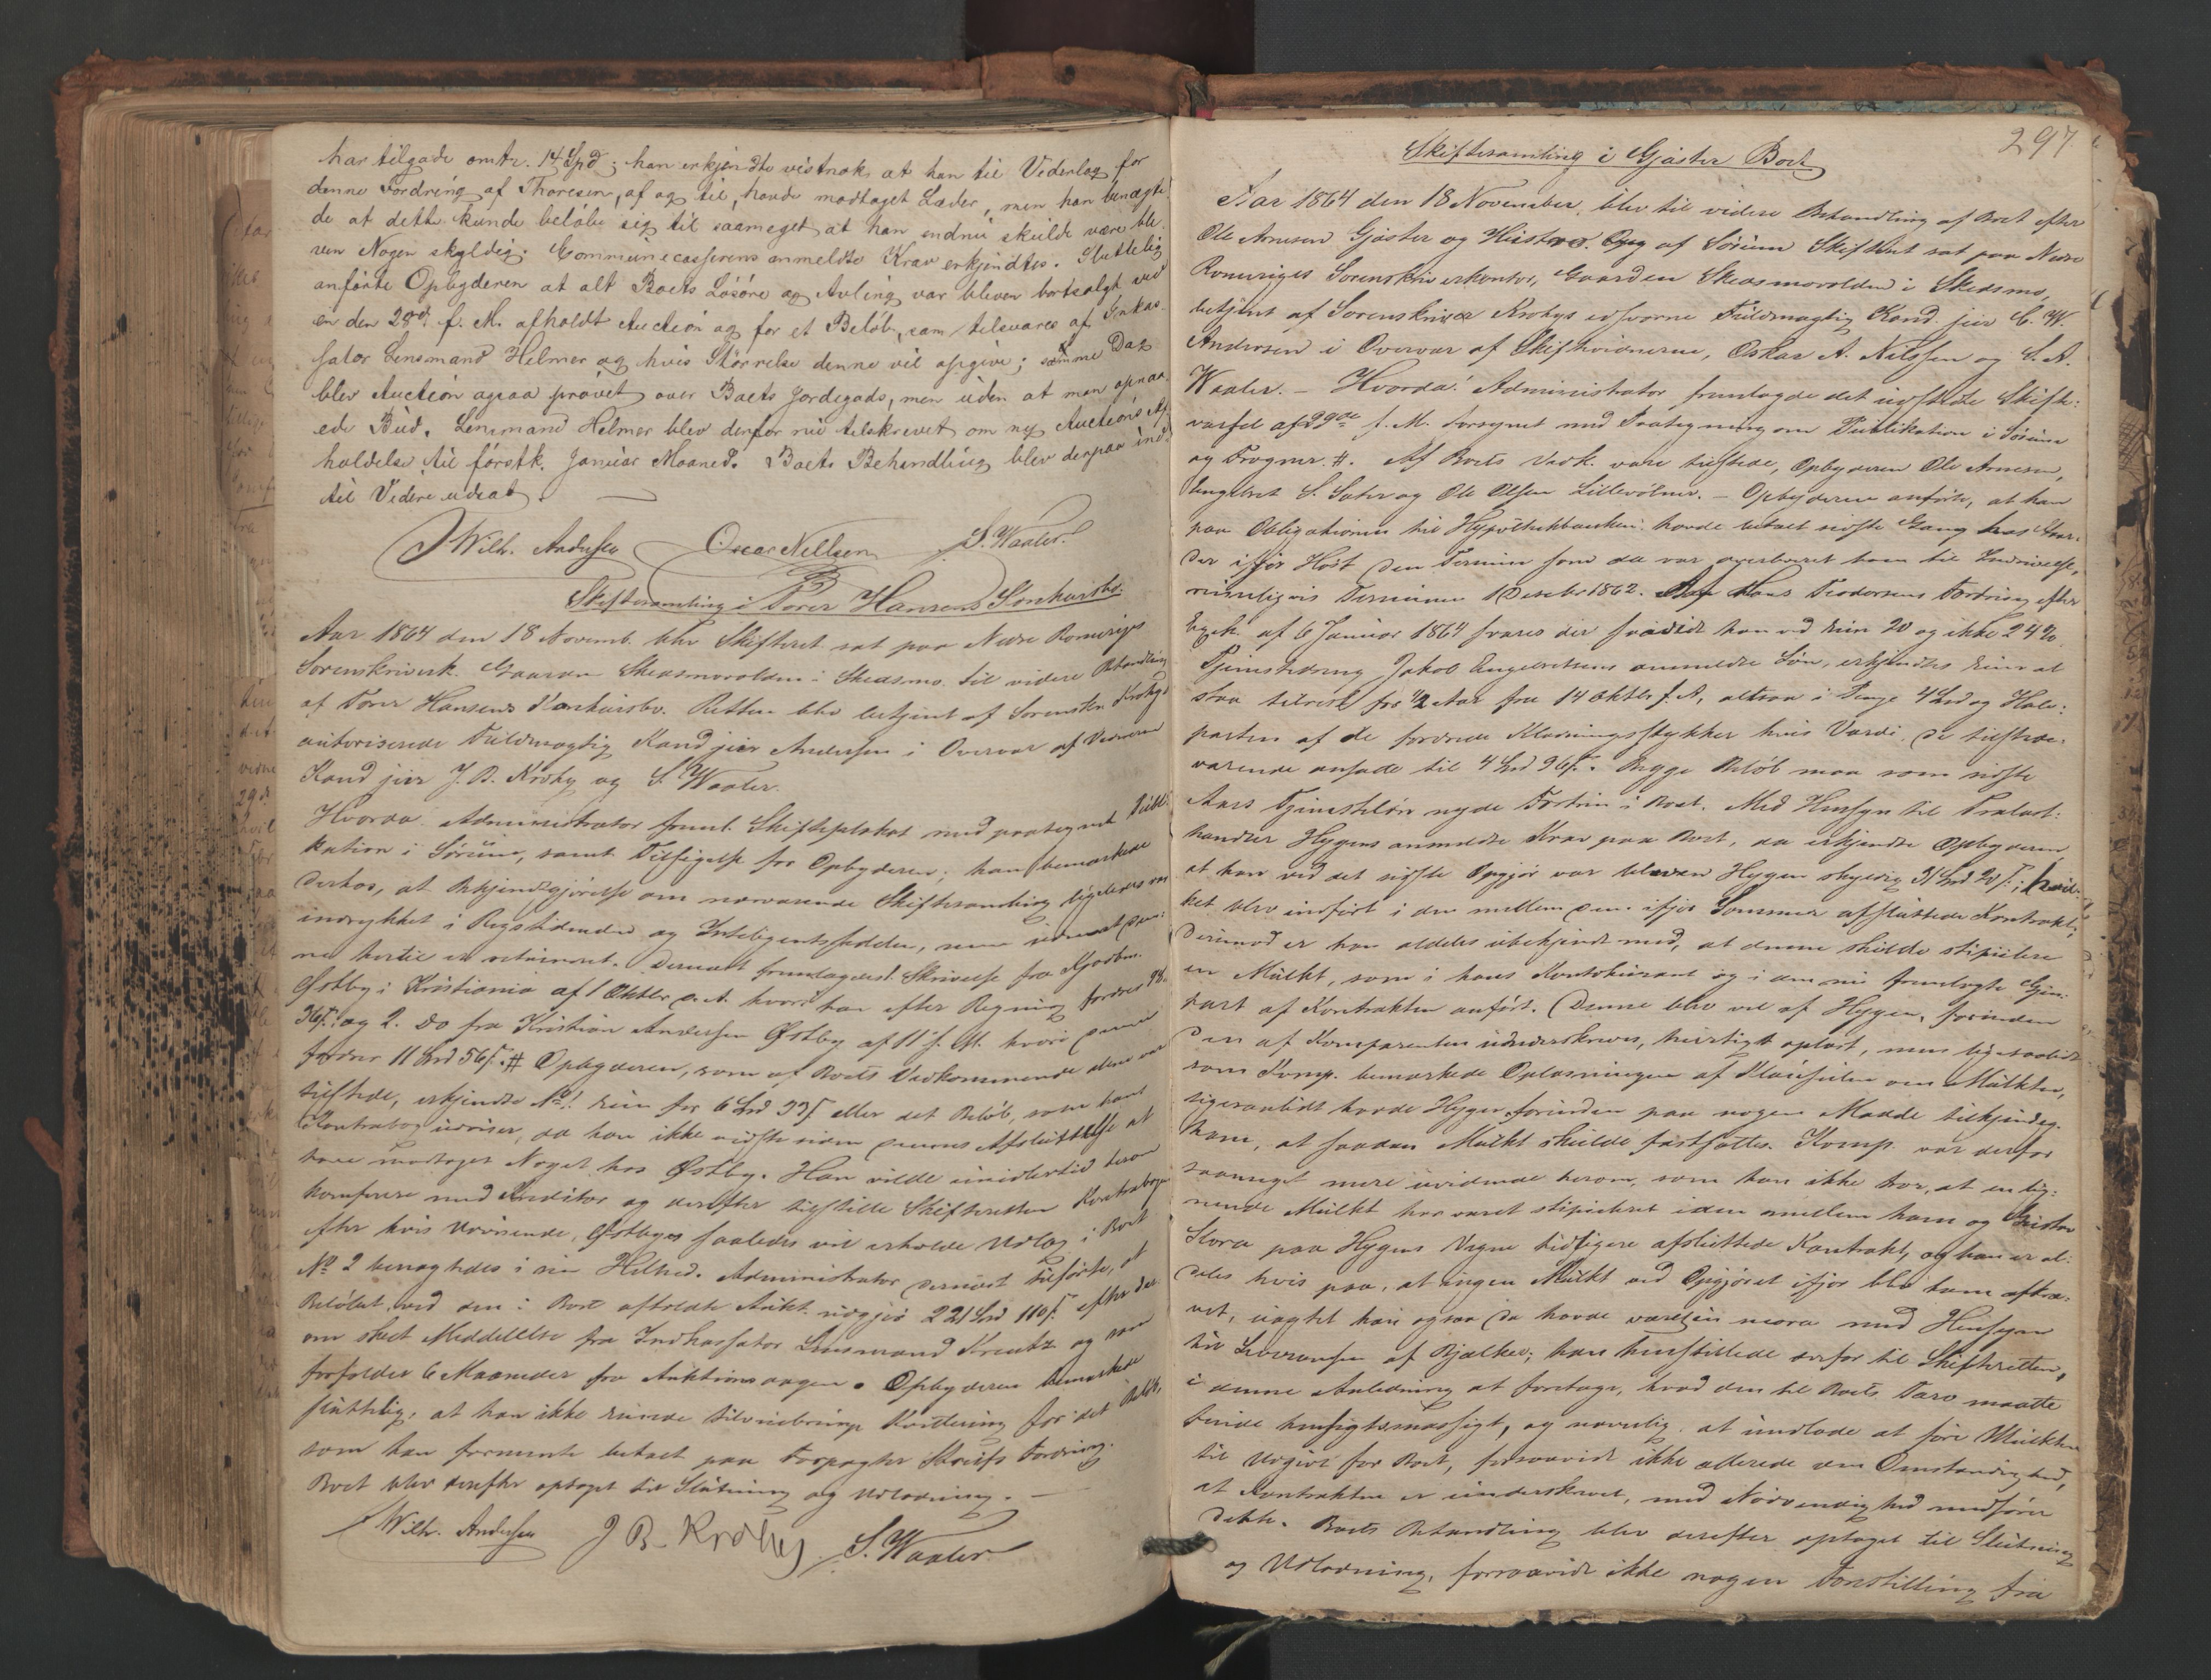 har tilgode omtr. 14 Spd; han erkjendte vistnok at han til Vederlag for
denne Fordring af Thoresen, af og til, havde modtaget Læder, men han benægte
de at dette kunde beløbe sig til saameget at han endnu skulde være ble
ven Nogen skyldig. Communecasserens anmeldte Krav erkjendtes. Sluttelig
anførte Opbyderen at alt Boets Løsøre og Avling var bleven bortsolgt ved
en den 28de f. M. afholdt Auction og for et Beløb, som tilsvares af Inkas-
sator Lensmand Helmer og hvis Størrelse denne vil opgive; samme Dag
blev Auction ogsaa prøvet over Boets Jordegods, men uden at man opnaa-
ede Bud. Lensmand Helmer blev derfor nu tilskrevet om ny Auctions Af-
holdelse til førstk. Januar Maaned. Boets Behandling blev derpaa ind-
til Videre udsat.
Wilh. Andersen Oscar Nilssen S. Waaler.
Skiftesamling i Torer Hansens Sønhuusbo.
Aar 1864 den 18 Novemb. blev Skifteret sat paa Nedre Romeriges
Sorenskriverk. Gaarden Skedsmovolden i Skedsmo til videre Behandling
af Torer Hansens Bo. Retten blev betjent af Sorenskr Krohgs
autoriserede Fuldmægtig Kand jur Andersen i Overvær af Vidnerne
Kand jur J. B. Krohg og S. Waaler.
Hvorda Administrator freml. Skifteplakat med paategnet Publi-
kation i Sørum, samt Tilsigelse for Opbyderen; han bemærkede
derhos, at Bekjendtgjørelse om nærværende Skiftesamling ligeledes var
indrykket i Rigstidende og Inteligentssedlen, men
ne hertil er returneret. Dernæst fremlagdes 1. Skrivelse fra Kjøbm.
Østby i Kristiania af 1 Oktbr d. A. hvori han efter Regning fordres
36 s. og 2. Do fra Kristian Andersen Østby af 11 f. M. hvori denne
fordrer 11 Spd 56 s. # Opbyderen, som af Boets Vedkommende alene var
tilstede, erkjendte No 1. kun for 6 Spd 33 s eller det Beløb, som hans
Kontrabog udviser, da han ikke vidste siden dennes Afsluttelse at
have modtaget Noget hos Østby. Han vilde imidlertid herom
konferere med Kreditor og derefter tilstille Skifteretten Kontrabogen
efter hvis Udvisende, Østbyes saaledes vil erholde Udlæg i Boet
No 2 benægtedes i sin Helhed. Administrator dernæst tilførte, at
Beløbet ved den i Boet afholdte Aukt. udgjør 221 Spd 110 s. efter der
om skeet Meddelelse fra Indkassator Lensmand Kreutz og som
forfalder 6 Maaneder fra Auktionsdagen. Opbyderen bemærkede
sluttelig, at han ikke kunde tilveiebringe Kvittering for det Beløb,
som han formente betalt paa Forpagter Fordring.
Boet blev derefter optaget til Slutning og Udlodning. —
Wilh. Andersen J B. Krohg S. Waaler
297.
Skiftesamling i Gjøster Boet
Aar 1864 den 18 November, blev til videre Behandling af Boet efter
Ole Arnesen Gjøster og Hustroe Opg af Sørum Skifteret sat paa Nedre
Romeriges Sorenskriverkontor, Gaarden Skedsmovolden i Skedsmo,
betjent af Sorenskriver Krohgs edsvorne Fuldmægtig Kand. jur C. W.
Andersen i Overvær af Skiftevidnerne, Oskar A. Nilssen og S. A.
Waaler. – Hvorda! Administrator fremlagde det udstedte Skifte-
varsel af 22de f. M. forsynet med Paategning om Publikation i Sørum
og Frogner. #. Af Boets Vedk. vare tilstede, Opbyderen Ole Arnesen,
Engebret S. Sater og Ole Olsen Lillevolner. – Opbyderen anførte, at han
paa Obligationen til Hypothekbanken havde betalt sidste Gang
der ifjor Høst den Termin som da var overleveret ham til Inddrivelse,
rimeligvis Terminen 1 Decbr 1862. Af Hans Teodorsens Fordring efter
Exek. af 6 Januar 1864 svares der saavidt han ved kun 20 og ikke 24 %.
Tjenestedreng Jakob Engebretsens anmeldte Løn, erkjendtes kun at
staa tilrest for 1/2 Aar fra 14 Oktbr f. A, altsaa i Penge 4 Spd og Halv-
parten af de fordrede Klædningsstykker hvis Værdi, de tilstede-
værende ansaae til 4 Spd 96 s. Begge Beløb maa som sidste
Aars Tjenesteløn nyde Fortrin i Boet. Med Hensyn til Trælast-
handler Hygens anmeldte Krav paa Boet, da erkjendte Opbyderen
at han ved det sidste Opgjør var bleven Hygen skyldig 31 Spd 20 s., hvil-
ket blev indført i den mellem dem ifjor Sommer afsluttede Kontrakt;
derimod er han aldeles ubekjendt med, at denne skulde stipulere
en Mulkt, som i hans Kontokurant og i den nu fremlagte Gjen-
part af Kontrakten anført. (Denne blev vel af Hygen, forinden
den af Komparenten underskreves, hurtigt oplæst, men ligesaalidt
som Komp. bemærkede Oplæsningen af Klausulen om Mulkten,
ligesaalidt havde Hygen forinden paa nogen Maade tilkjendeg.
ham, at saadan Mulkt skulde fastsættes. Komp. var derfor
saameget mere uvidende herom, som han ikke tror, at en lig-
nende Mulkt har været stipuleret i den mellem ham og
Stora paa Hygens Vegne tidligere afsluttede Kontrakt, og han er al-
deles vis paa, at ingen Mulkt ved Opgjøret ifjor blev ham affor-
vet, uagtet han ogsaa da havde været in mora med Hensyn
til Leverancen af Bjælker; han henstillede derfor til Skifteretten,
i denne Anledning at foretage, hvad den til Boets Tarv maatte
finde hensigtsmæssigt, og navnlig at undlade at føre Mulkten
til Udgivt for Boet, forsaavidt ikke allerede den Omstændighed,
at Kontrakten er underskrevet, med Nødvendighed medfører
dette. Boets Behandling blev derefter optaget til Slutning
og Udlodning, forsaavidt ikke nogen Forestilling fra